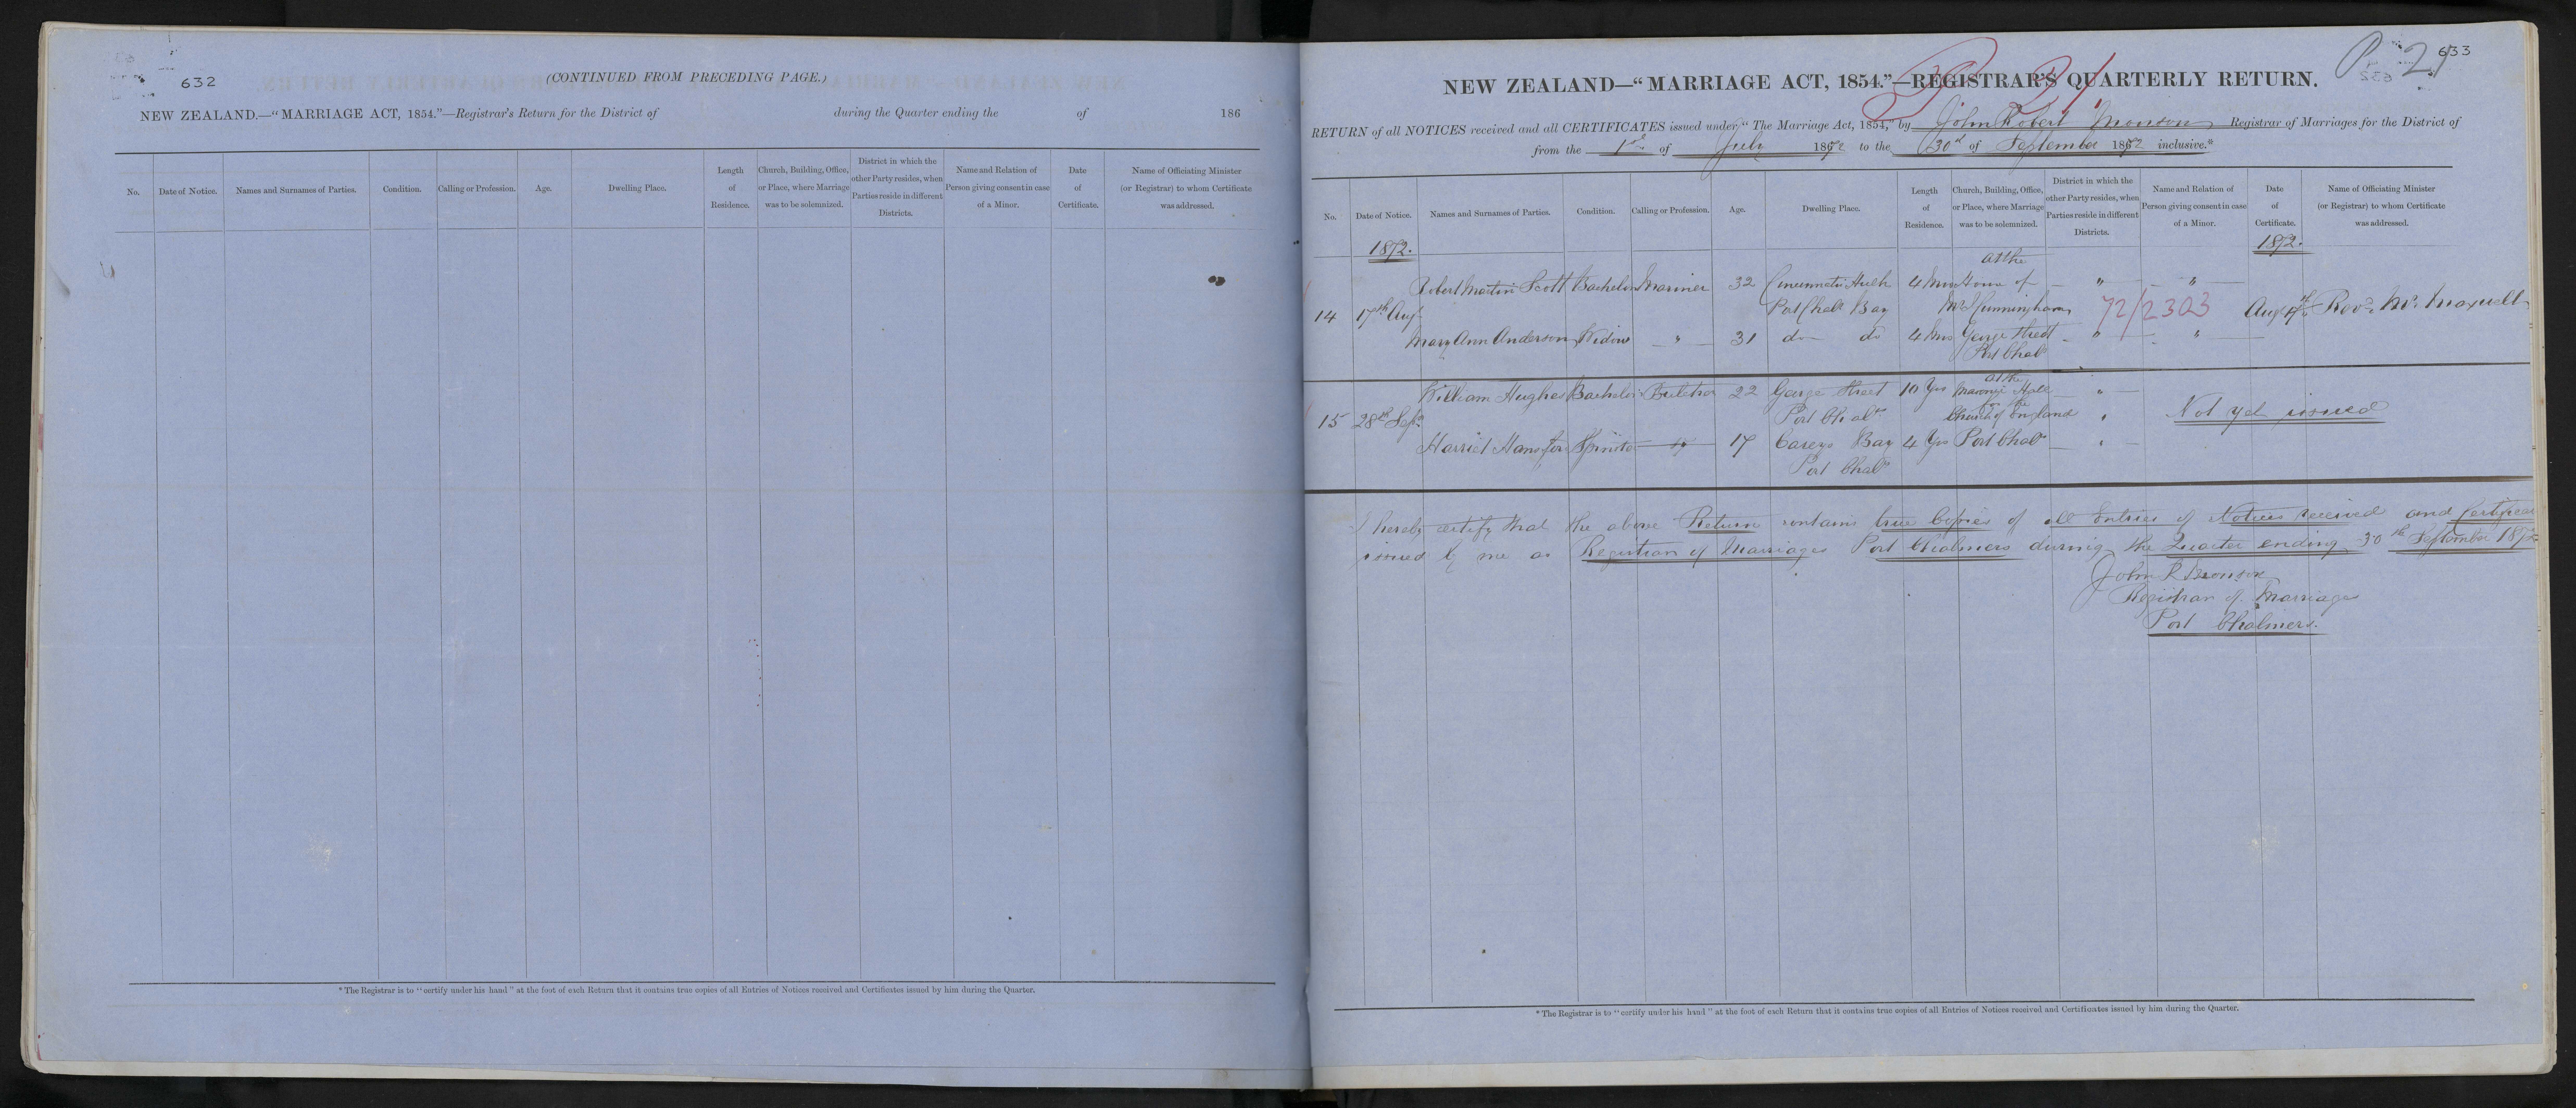 632
(CONTINUED FROM PRECEDING PAGE.)
NEW ZEALAND.—"MARRIAGE ACT, 1854."—Registrar's Return for the District of during the Quarter ending the of 186
No. Date of Notice. Names and Surnames of Parties. Condition. Calling or Profession. Age. Dwelling Place. Length of Residence. Church, Building, Office, or Place, where Marriage was to be solemnized. District in which the other Party resides, when Parties reside in different Districts. Name and Relation of Person giving consent in case of a Minor. Date of Certificate. Name of Officiating Minister (or Registrar) to whom Certificate was addressed.
* The Registrar is to "certify under his hand" at the foot of each Return that it contains true copies of all Entries of Notices received and Certificates issued by him during the Quarter.
633
NEW ZEALAND—"MARRIAGE ACT, 1854."—REGISTRAR'S QUARTERLY RETURN.
RETURN of all NOTICES received and all CERTIFICATES issued under "The Marriage Act, 1854," by John Robert Monson Registrar of Marriages for the District of
from the 1st of July 1872 to the 30th of September 1872 inclusive.*
No. Date of Notice. Names and Surnames of Parties. Condition. Calling or Profession. Age. Dwelling Place. Length of Residence. Church, Building, Office, or Place, where Marriage was to be solemnized. District in which the other Party resides, when Parties reside in different Districts. Name and Relation of Person giving consent in case of a Minor. Date of Certificate. Name of Officiating Minister (or Registrar) to whom Certificate was addressed.
1872. 1872.
at the
Robert Martin Scott Bachelor Mariner 32 Cincinnati Hulk 4 Mos House of " "
14 17th Aug Port Chalr Bay Mrs Cunningham 72/2303 Aug Revd. Mr. Maxwell
Mary Ann Anderson Widow " 31 do do 4 Mos George Street " "
Port Chalr
at the
William Hughes Bachelor Butcher 22 George Street 10 Yrs Masonic Hall "
15 28th Sepr Port Chalrs Church of England " Not yet issued
Harriet Spinster " 17 Careys Bay 4 Yrs Port Chalr "
Port Chalr
I hereby certify that the above Return contains true Copies of all Entries of Notices received and Certificates
issued by me as Registrar of Marriages Port Chalmers during the Quarter ending 30th September 1872
John R Monson
Registrar of Marriages
Port Chalmers.
* The Registrar is to "certify under his hand" at the foot of each Return that it contains true copies of all Entries of Notices received and Certificates issued by him during the Quarter.